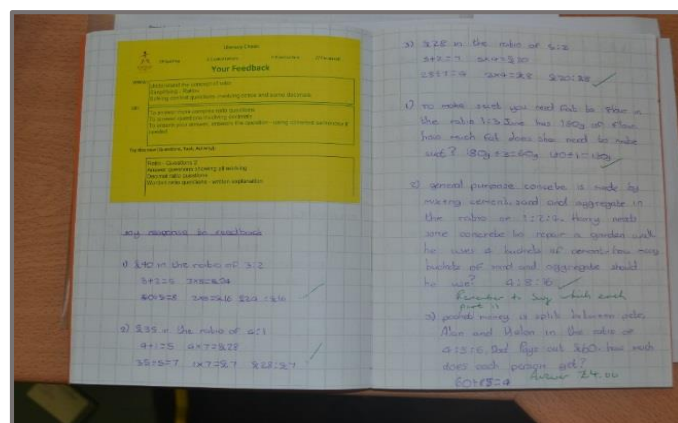 Literacy Check
Your Feedback
Understand the concept of ratio
Simplifying - Ratios
Solving worded questions involving ratios and some decimals
To answer more complex ratio questions
To answer questions involving decimals
needed
Ratio - Questions 2
Answer questions showing all working
Decimal ratio questions
Worded ratio questions - written explanation
my response to feedback
1) £40 in the ratio of 3:2
3+2=5 3×8=£24
40÷5=8 2×8=£16 £24:£16
2) £35 in the ratio of 4:1
4+1=5 4×7=£28
35÷5=7 1×7=£7 £28:£7
3) £28 in the ratio of 5:2
5+2=7 5×4=£20
28÷7=4 2×4=£8 £20:£8
1) to make suet you need fat to flour in
the ratio 1:3. June has 180g of flour
how much fat does she need to make
suet? 180g÷3=60g
2) general purpose concrete is made by
mixing cement, sand and aggregate in
the ratio of 1:2:4. Harry needs
some concrete to repair a garden wall
he uses 4 buckets of cement how many
buckets of sand and aggregate should
he use? 4:8:16
Remember to say which each
part is
3) pocket money is split between
Alan and Helen in the ratio of
4:5:6. Dad pays out £60. how much
does each person get?
60÷15=4 Answer £4.00